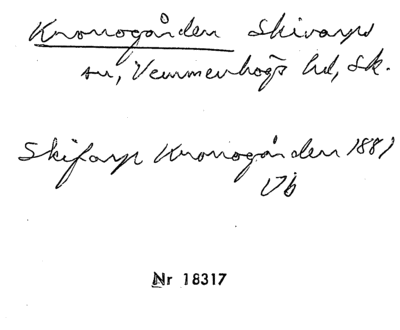 Kronogården Skivarps
sn, Vemmenhögs hd, Sk.
Skifarp Kronogården 1881
Vb
Nr 18317